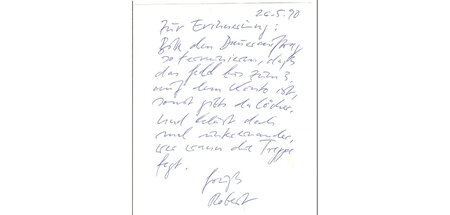 26.5.90
Zur Erinnerung:
Bitte den Dauerauftrag
so terminieren, daß
das Geld bis zum 3.
auf dem Konto ist,
sonst gibts da Löcher.
Und klärt doch
mal miteinander,
wer wann die Treppe
fegt.
Gruß
Robert